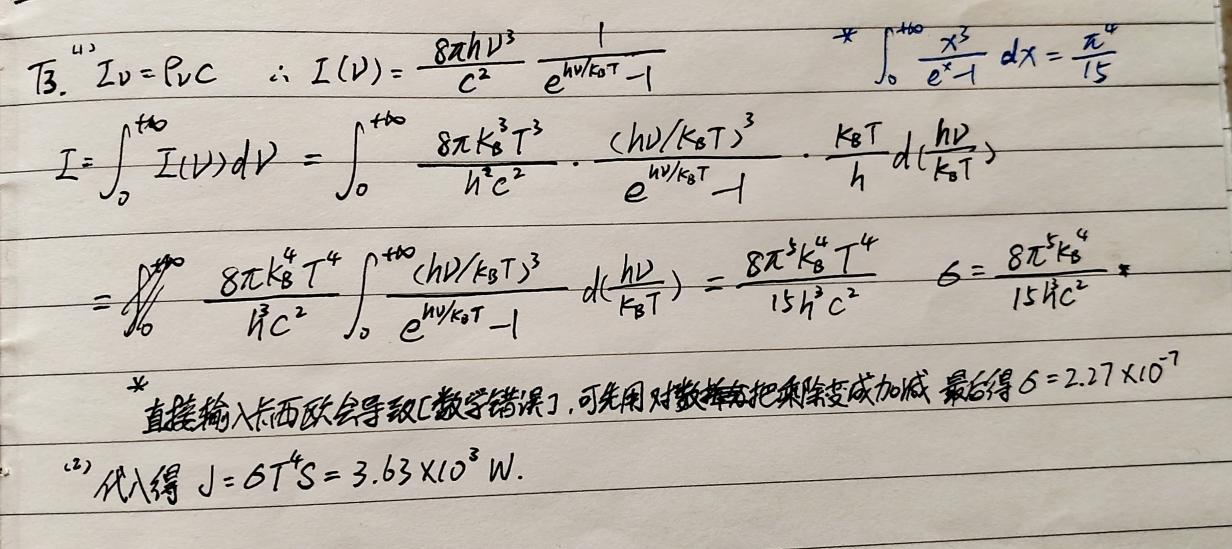 T3. (1) Iν = ρνC ∴ I(ν) = 8πhν³/c² · 1/(e^(hν/k_BT) - 1) * ∫₀^(+∞) x³/(eˣ-1) dx = π⁴/15
I = ∫₀^(+∞) I(ν)dν = ∫₀^(+∞) 8πk_B³T³/(h²c²) · (hν/k_BT)³/(e^(hν/k_BT) - 1) · k_BT/h d(hν/k_BT)
= 8πk_B⁴T⁴/(h³c²) ∫₀^(+∞) (hν/k_BT)³/(e^(hν/k_BT) - 1) d(hν/k_BT) = 8π⁵k_B⁴T⁴/(15h³c²) σ = 8π⁵k_B⁴/(15h³c²) *
* 直接输入卡西欧会导致[数学错误],可先用对数把乘除变成加减 最后得σ=2.27×10⁻⁷
(2) 代入得 J = σT⁴S = 3.63×10³ W.